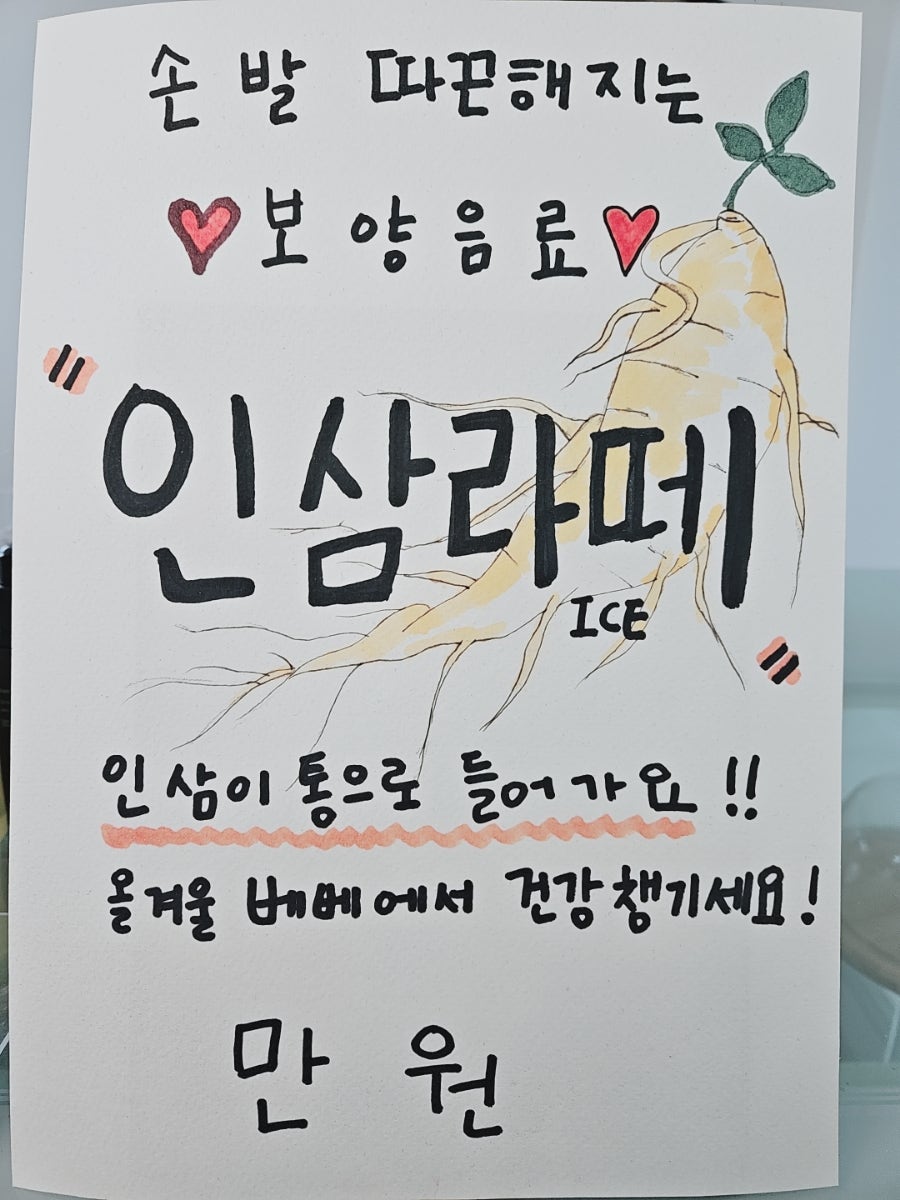 손발 따끈해지는
보양음료
"인삼라떼"
ICE
인삼이 통으로 들어가요!!
올겨울 베베에서 건강챙기세요!
만원